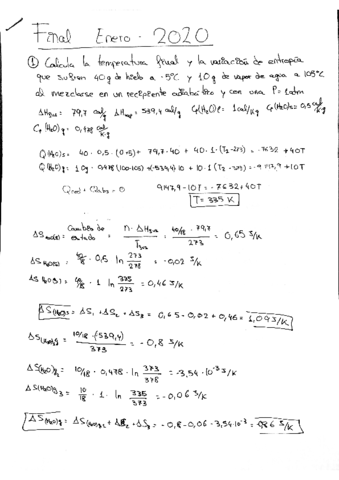 Final Enero - 2020
① Calcula la temperatura final y la variación de entropía
que sufren 40g de hielo a -5ºC y 10g de vapor de agua a 105ºC
al mezclarse en un recipiente adiabático y con una P=1atm
ΔHfus = 79,7 cal/g ΔHvap = 539,4 cal/g Cp(H2O)l: 1 cal/Kg Cp(H2O)s = 0,5 cal/Kg
Cp(H2O)g: 0,478 cal/K·g
Q(H2O)s = 40 · 0,5 (0+5) + 79,7·40 + 40·1·(T2-273) = -7632 + 40T
Q(H2O)g: 10g · 0,478(100-105) + (-539,4)10 + 10·1(T2-373) = -9147,9 + 10T
Qced + Qabs = 0
9147,9 - 10T = -7632 + 40T
T = 335 K
cambio de estado = n · ΔHfus / Tfus = 40/18 · 79,7 / 273 = 0,65 J/K
· 0,5 ln 273/278 = -0,02 J/K
· 1 ln 335/273 = 0,46 J/K
= ΔS1 + ΔS2 + ΔS3 = 0,65 - 0,02 + 0,46 = 1,09 J/K
= 10/18 · (539,4) / 373 = -0,8 J/K
ΔS(H2O)g2 = 10/18 · 0,478 · ln 373/378 = -3,54·10⁻³ J/K
ΔS(H2O)g3 = 10/18 · 1 · ln 335/373 = -0,06 J/K
= -0,8 - 0,06 - 3,54·10⁻³ =